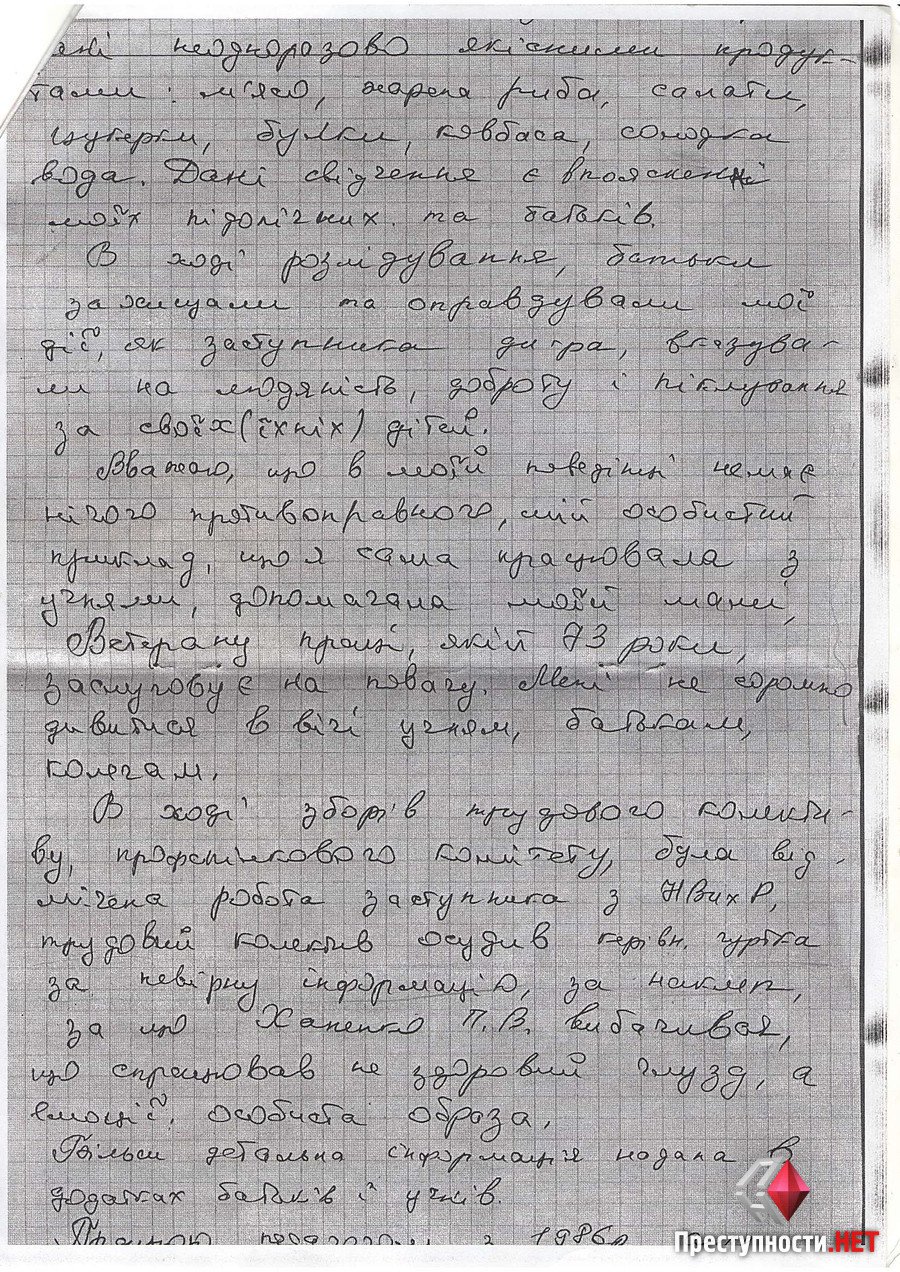 неодноразово якісними продук-
тами: м'ясо, жарена риба, салати,
цукерки, булки, ковбаса, солодка
вода. Дані свідчення є в поясненні
моїх підопічних та батьків.
В ході розлідування, батьки
захищали та оправдували мої
дії, як заступника ди-ра, вказува-
ли на людяність, доброту і піклування
за своїх (їхніх) дітей.
Вважаю, що в моїй поведінці немає
нічого противоправного, мій особистий
приклад, що я сама працювала з
учнями, допомагала моїй мамі,
Ветерану праці, якій 73 роки,
заслуговує на повагу. Мені не соромно
дивитися в вічі учням, батькам,
колегам.
В ході зборів трудового колекти-
ву, профспілкового комітету, була від-
мічена робота заступника з НВихР,
трудовий колектив осудив керівн. гуртка
за невірну інформацію, за наклеп,
за що Ханенко П.В. вибачився,
що спрацював не здоровий глузд, а
емоції, особиста образа.
Більш детальна інформація надана в
додатках батьків і учнів.
Працюю педагогом з 1986р
Преступности.НЕТ